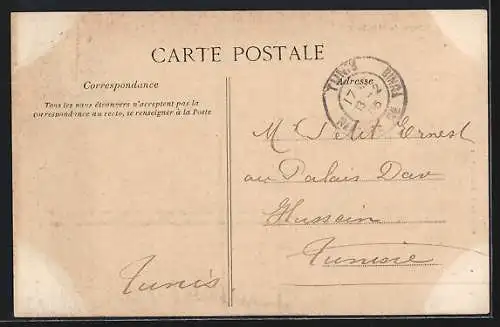 CARTE POSTALE
Correspondance
Tous les pays étrangers n'acceptent pas la
correspondance au recto, se renseigner à la Poste
Adresse
TUNIS
17
13-2
M Petit Ernest
au Palais Dar
Hussein
Tunisie
Tunis